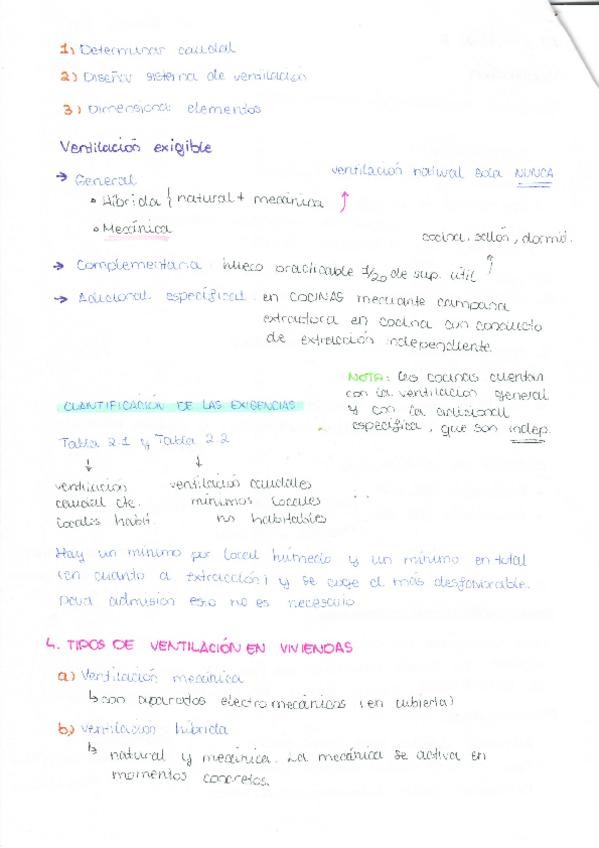 1) Determinar caudal
2) Diseñar sistema de ventilación
3) Dimensionar elementos
Ventilación exigible
→ General
ventilación natural sola NUNCA
• Híbrida { natural + mecánica ↑
• Mecánica
cocina, salón, dormi.
→ Complementaria: hueco practicable 1/20 de sup. útil ↑
→ Adicional específica: en COCINAS mediante campana
extractora en cocina con conducto
de extracción independiente.
NOTA: las cocinas cuentan
con la ventilación general
y con la adicional
específica, que son indep.
CUANTIFICACIÓN DE LAS EXIGENCIAS
Tabla 2.1 y Tabla 2.2
↓ ↓
ventilación ventilación caudales
caudal cte. mínimos locales
locales habit. no habitables
Hay un mínimo por local húmedo y un mínimo en total
(en cuanto a extracción) y se coge el más desfavorable.
Para admisión eso no es necesario
4. TIPOS DE VENTILACIÓN EN VIVIENDAS
a) Ventilación mecánica
↳ son aparatos electromecánicos (en cubierta)
b) Ventilación híbrida
↳ natural y mecánica. La mecánica se activa en
momentos concretos.